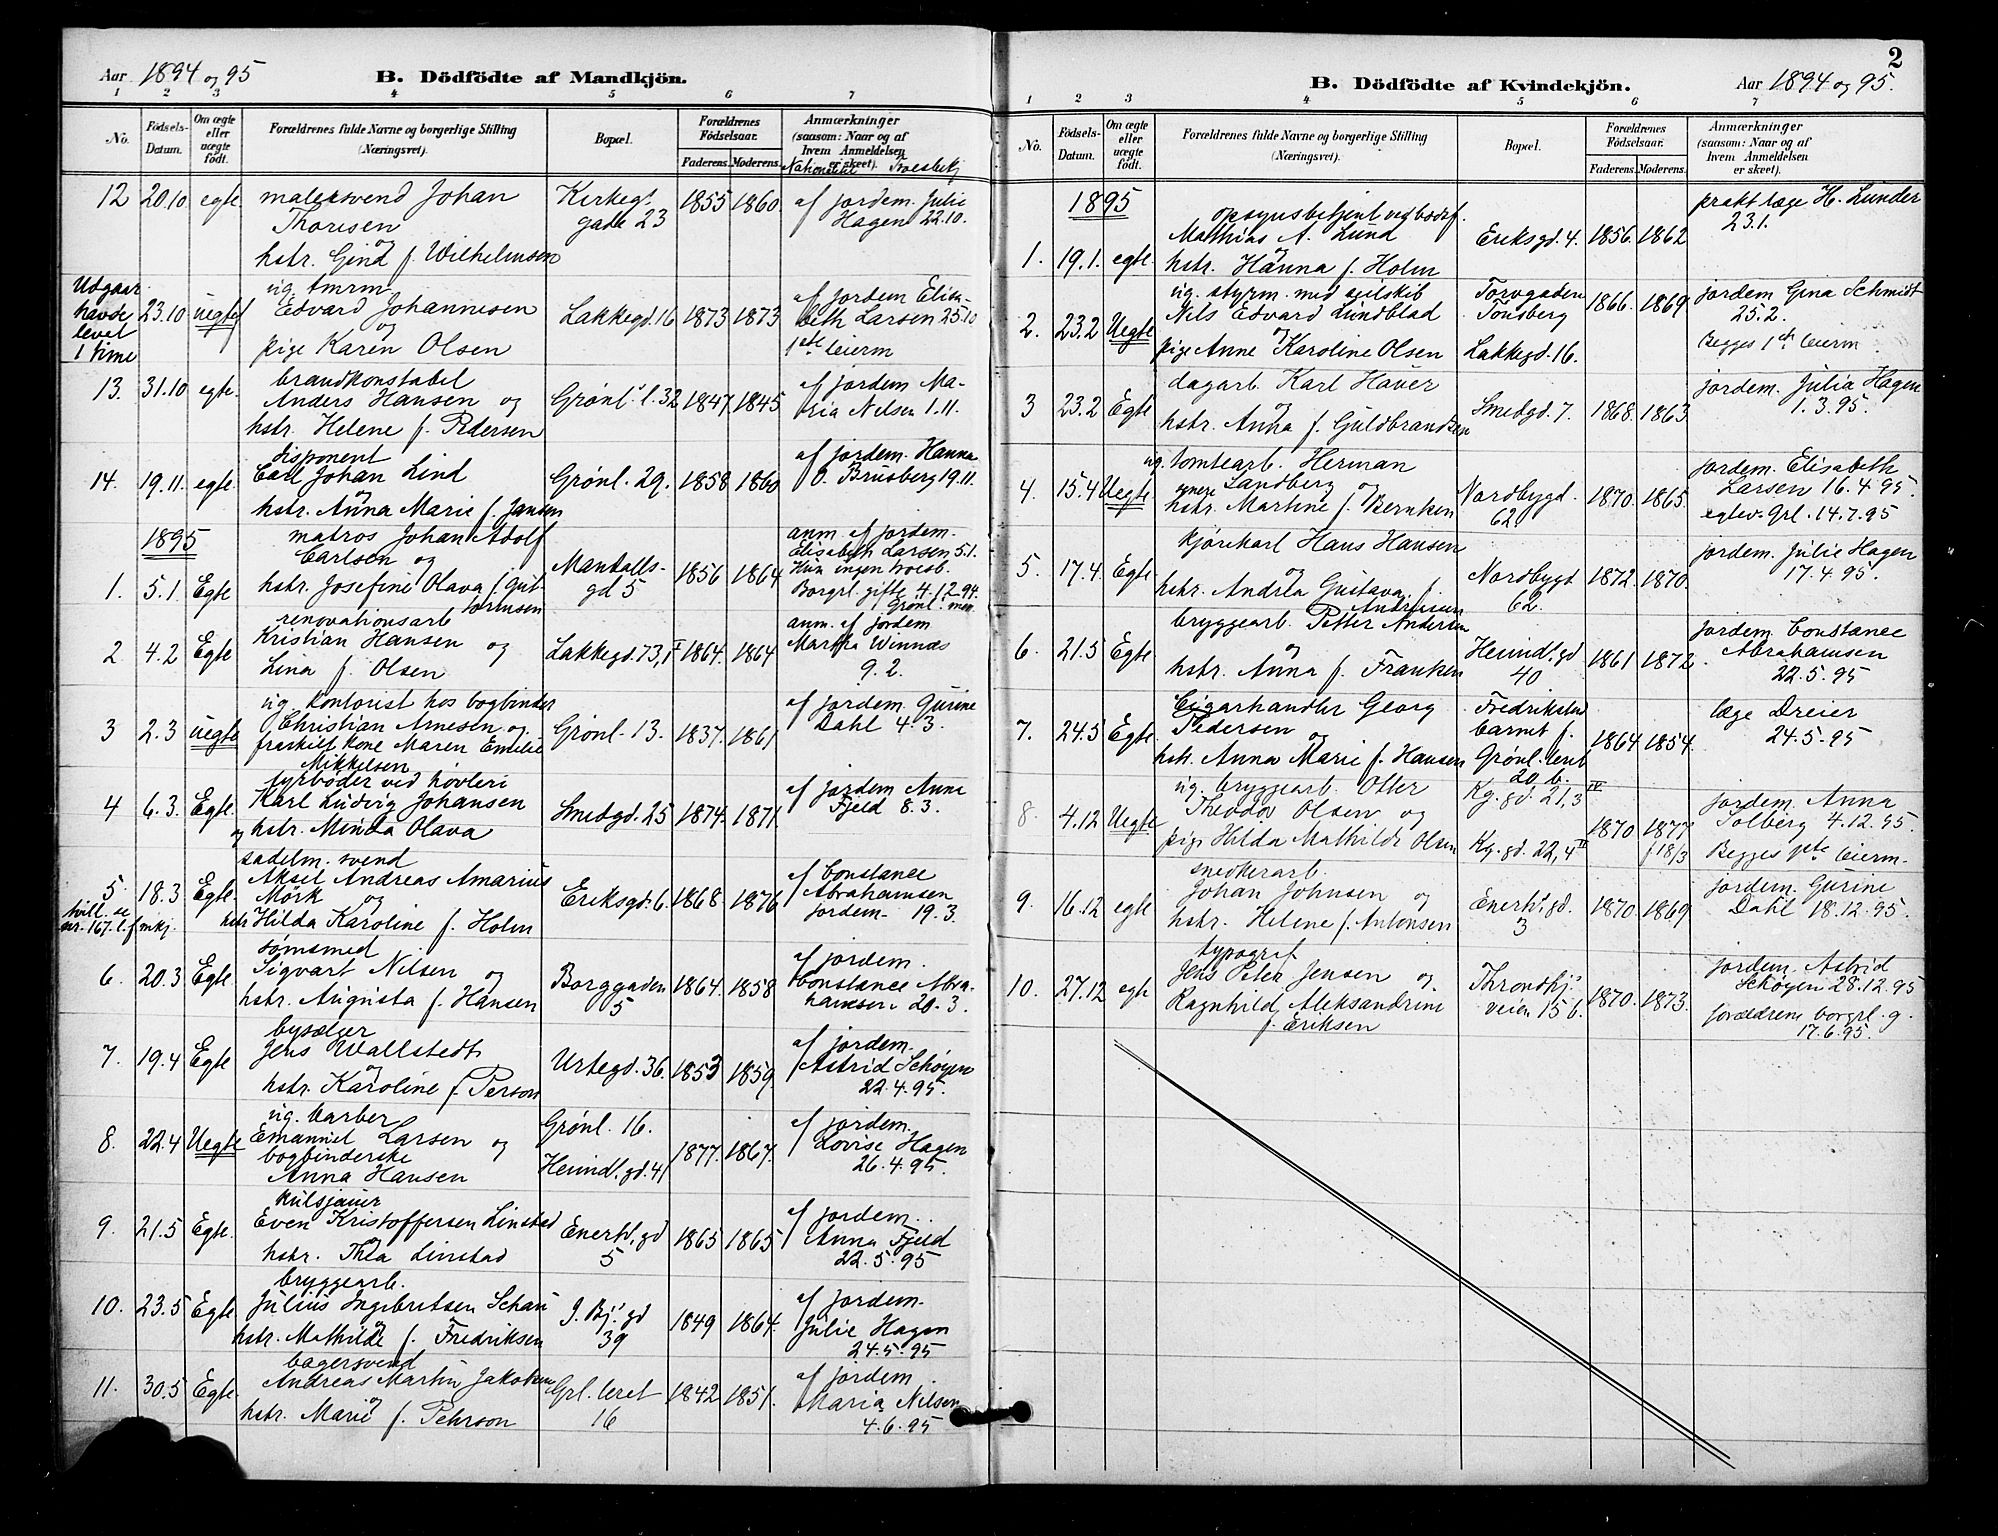 Aar 1894 og 95
B. Dödfödte af Mandkjön.
1 2 3 4 5 6 7
No.
Födsels-Datum.
Om ægte eller uægte födt.
Forældrenes fulde Navne og borgerlige Stilling (Næringsvei).
Bopæl.
Forældrenes Födselsaar.
Faderens. Moderens.
Anmærkninger (saasom: Naar og af hvem Anmeldelsen er skeet).
Nationalitet Troesbekj
12 20.10 egte malersvend Johan Kirkegt. 1855 1860 af jordem. Julie
Thorisen gade 23 Hagen 22.10.
og
hstr. Gina f. Wilhelmsen
Udgaar ug. tmrm. af jordem Elisa-
havde 23.10 uegte Edvard Johannesen Lakkegd. 16 1873 1873 beth Larsen 25.10
levet og 1ste leierm
1 time pige Karen Olsen
13. 31.10 egte. brandkonstabel af jordem Ma-
Anders Hansen og Grønl. l. 32 1847. 1845 ria Nilsen 1.11.
hstr. Helene f. Pedersen
disponent af jordem. Hanna
14. 19.11. egte. Carl Johan Lind Grønl. 29. 1858 1860 O. Brusberg 19.11.
og
hstr. Anna Marie f. Jansen
1895 matros Johan Adolf anm. af jordem.
Carlsen og Mandalls- Elisabeth Larsen 5.1.
1. 5.1. Egte hstr. Josefine Olava f. Gut- gd 5 1856 1864 Hun ingen troesb.
tormsen Borgrl. gifte 4.12.94.
Grønl. men.
renovationsarb anm. af jordem
2 4.2 Egte Kristian Hansen og Lakkegd. 73, I 1864. 1864 Martha Winnæs
Lina f. Olsen 9.2.
ug. kontorist hos bogbinder af jordem. Gurine
3 2.3 uegte Christian Arnesen og Grønl. 13. 1837. 1861 Dahl 4.3.
fraskilt kone Maren Emelie
Mikkelsen
fyrbøder ved høvleri af jordem Anne
4 6.3. Egte. Karl Ludvig Johansen Smedgd. 25 1874. 1871. Fjeld 8.3.
og hstr. Minda Olava
sadelm. svend af Constance
5 18.3 Egte. Aksel Andreas Amarius Eriksgd. 6. 1868 1876 Abrahamsen
tvill. se Mörk og jordem- 19.3.
nr. 167. l. f mkj. hstr Hilda Karoline f. Holm
sömsmed af jordem.
6. 20.3 Egte. Sigvart Nilsen og Borggaden 1864. 1858 Constance Abra-
hstr. Augusta f. Hansen 5 hamsen 20.3.
bysælger af jordem.
7. 19.4 Egte Jens Wallstedt Urtegd. 36. 1853 1859 Astrid Schøyen
og
hstr. Karoline f. Person 22.4.95.
ug. barber Grønl. 16. af jordem.
8. 22.4 Uegte Emanuel Larsen og 1877. 1867. Lovise Hagen
bogbinderske Heimdl. gd. 41 26.4.95.
Anna Hansen
kulsjauer af jordem.
9. 21.5 Egte. Even Kristoffersen Linstad Enerh. gd 1865 1865 Anna Fjeld
hstr. Thea Linstad 5 22.5.95
bryggearb. af jordem.
10. 23.5 Egte Julius Ingebritsen Schau J. Bj. gd 1849 1864. Julie Hagen
og
hstr. Mathilde f. Fredriksen 39 24.5.95
bagersvend af jordem.
11. 30.5 Egte. Andreas Martin Jakobsen Grl. leret 1842 1851. Maria Nilsen
og
hstr. Marie f. Pehrson 16 4.6.95
2
B. Dödfödte af Kvindekjön.
Aar 1894 og 95.
1 2 3 4 5 6 7
No.
Födsels-Datum.
Om ægte eller uægte födt.
Forældrenes fulde Navne og borgerlige Stilling (Næringsvei).
Bopæl.
Forældrenes Födselsaar.
Faderens. Moderens.
Anmærkninger (saasom: Naar og af hvem Anmeldelsen er skeet).
1895 prakt læge H. Lunder
opsynsbetjent ved bodsf. 23.1.
Matthias A. Lund Eriksgd. 4. 1856. 1862
og
1. 19.1. egte hstr. Hanna f. Holm
ug. styrm. med seilskib Torvgaden jordem Gina Schmidt
2. 23.2 Uegte Nils Edvard Lundblad Tönsberg 1866. 1869 25.2.
og Begges 1ste leierm.
pige Anne Karoline Olsen Lakkegd. 16.
dagarb. Karl Haver jordem. Julia Hagen
3 23.2 Egte og Smedgd. 7. 1868. 1863 1.3.95.
hstr. Anna f. Guldbrandsen
ug. tomtearb. Herman jordem. Elisabeth
4. 15.4 Uegte Sandberg og Nordbygd. 1870. 1865. Larsen 16.4.95.
hstr. Martine f. Berntsen 62. Grl. 14.7.95
kjørekarl Hans Hansen jordem. Julie Hagen
5. 17.4. Egte og Nordbygt 1872. 1870. 17.4.95.
hstr. Andrea Gustava f. 62.
Andreasen
bryggearb. Petter Andersen jordem. Constance
6. 21.5 Egte. og Heimdl. gd 1861 1872 Abrahamsen
hstr. Anna f. Franken 40 22.5.95
Cigarhandler Georg Fredrikstad læge Dreier
7. 24.5 Egte. Pedersen og barnet f. 1864 1854. 24.5.95
hstr. Anna Marie f. Hansen Grønl. leret
20 b.
ug. bryggearb. Otter Kg. gd. 21,3 IV jordem. Anna
8. 4.12 Uegte Theodor Olsen og 1870 1877 Solberg 4.12.95.
pige Hilda Mathilde Olsen Kg. gd. 22,4 II f 18/3 Begges 1ste leierm.
snedkerarb. jordem. Gurine
9. 16.12 egte Johan Johnsen og Enerh. gd. 1870. 1869 Dahl 18.12.95.
hstr. Helene f. Antonsen 3
typograf jordem. Astrid
10. 27.12 egte Jens Peter Jensen og Throndhj. 1870. 1873. Schøyen 28.12.95
Ragnhild Aleksandrine veien 15 b. forældrene borgrl. g.
f. Eriksen 17.6.95.